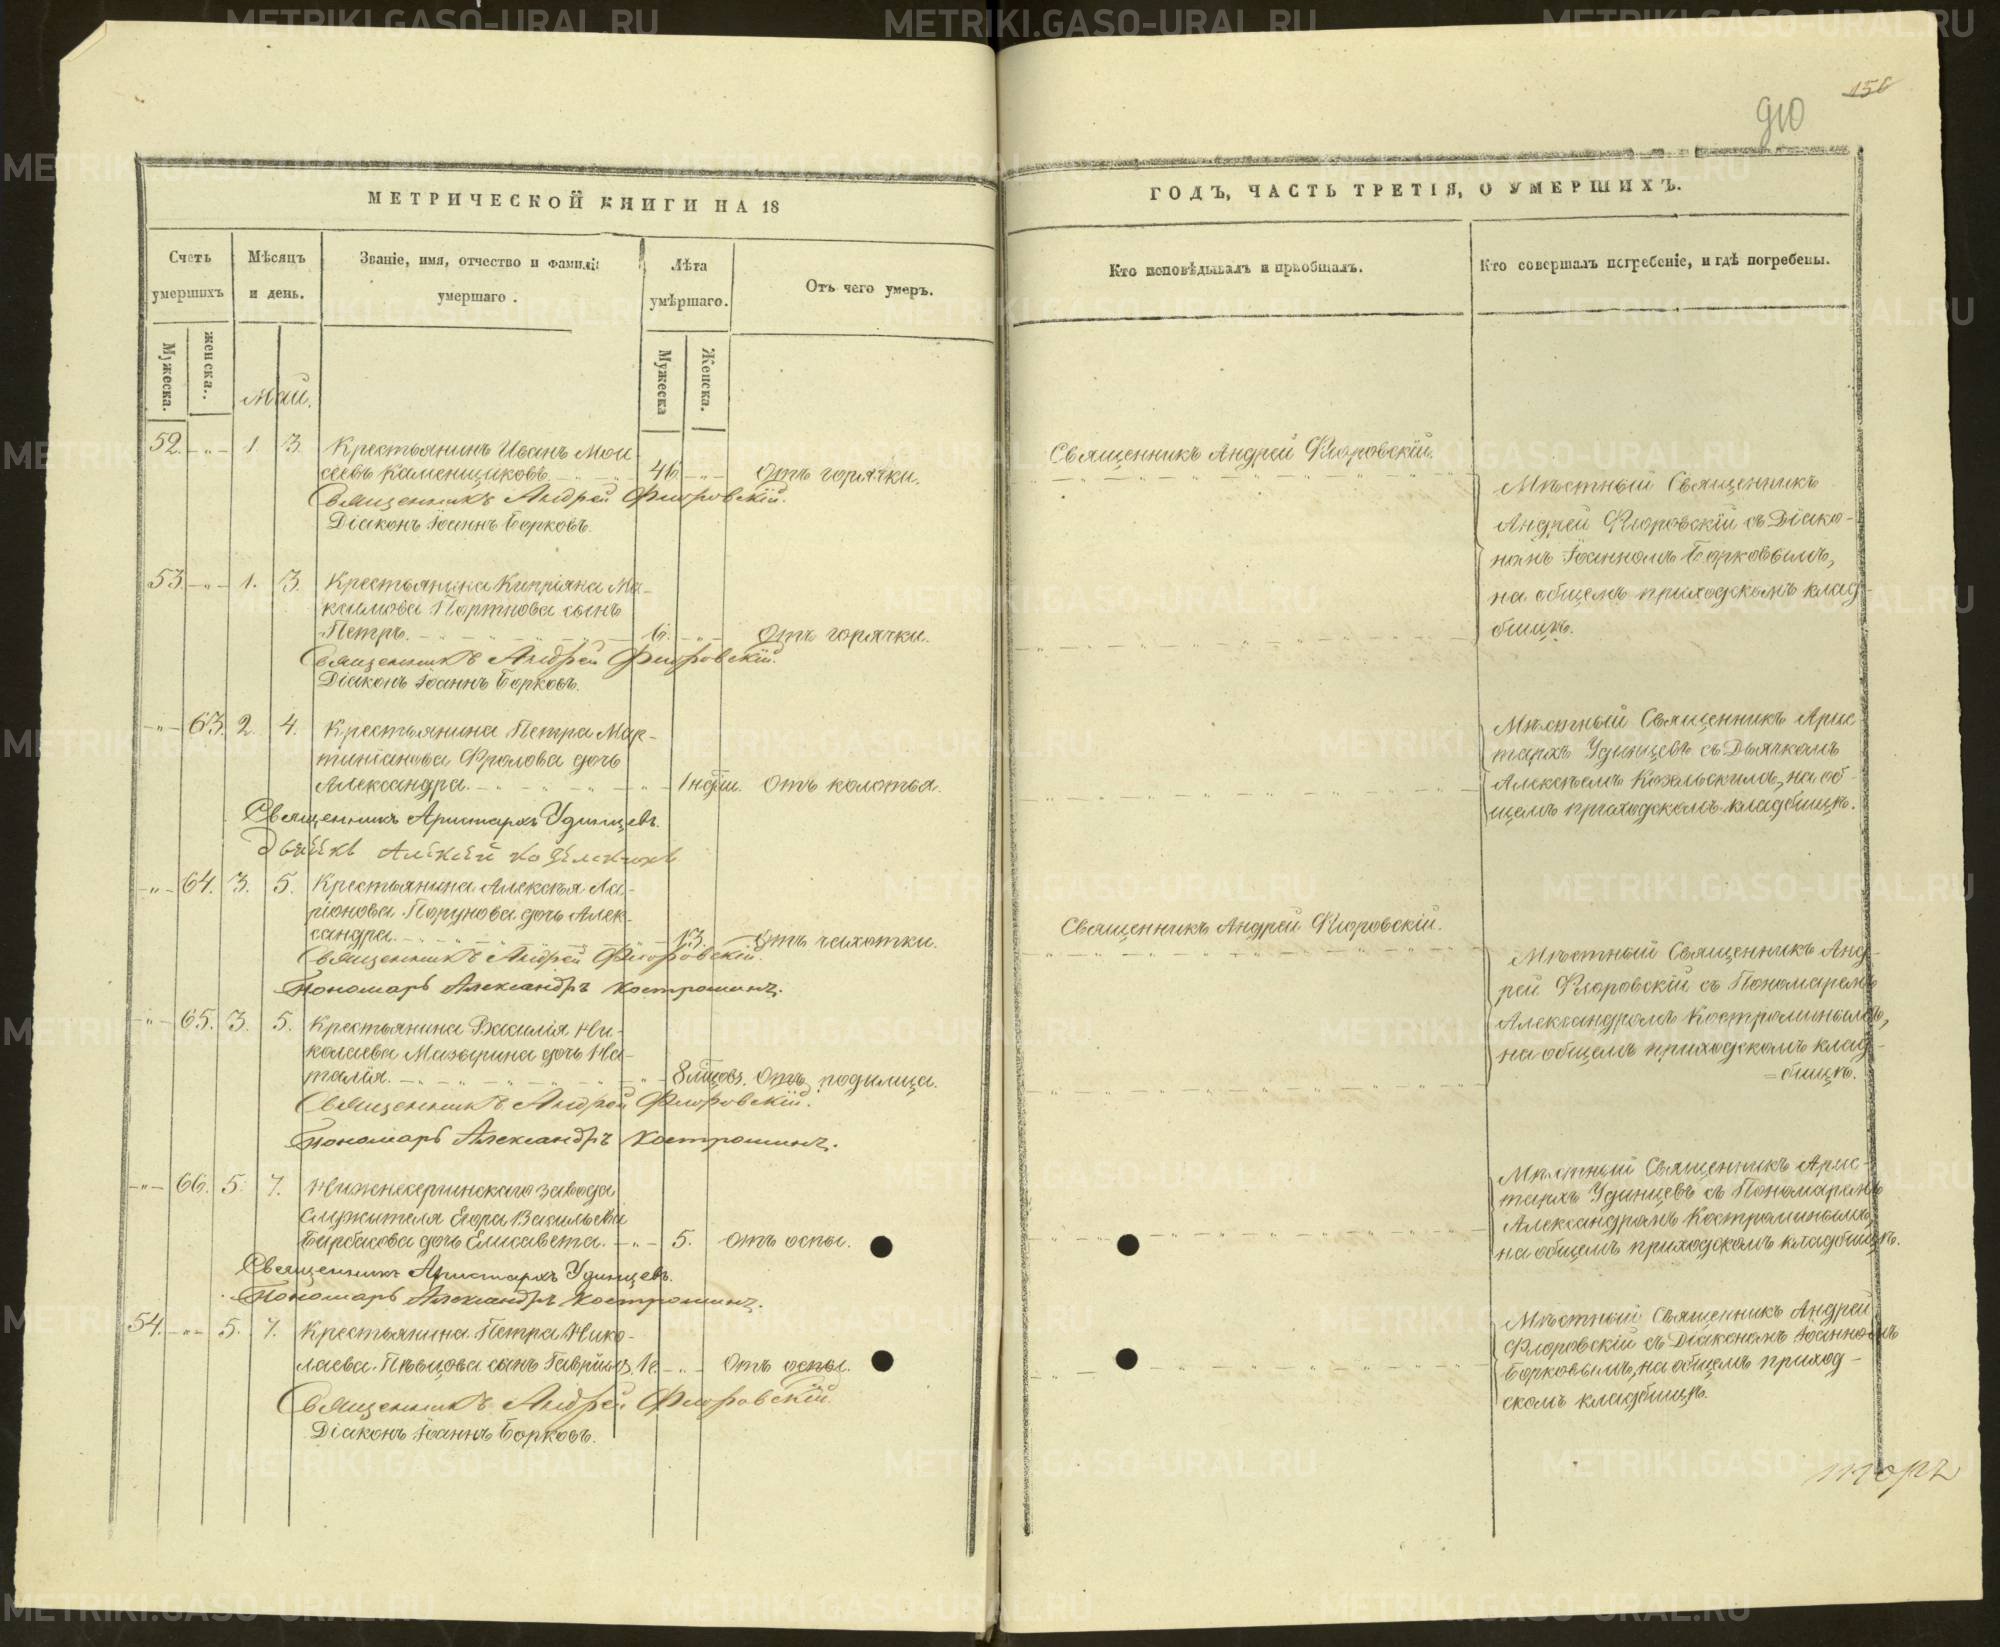 156
910
МЕТРИЧЕСКОЙ КНИГИ НА 18
ГОДЪ, ЧАСТЬ ТРЕТІЯ, О УМЕРШИХЪ.
Счетъ умершихъ
Мѣсяцъ и день.
Званіе, имя, отчество и фамилія умершаго.
Лѣта умѣршаго.
Отъ чего умеръ.
Кто исповѣдывалъ и пріобщалъ.
Кто совершалъ погребеніе, и гдѣ погребены.
Мужеска.
женска.
Мужеска
Женска.
Май.
52. -„- 1. 3. Крестьянинъ Иванъ Мои
сеевъ Каменщиковъ. 46. -„- Отъ горячки.
Священникъ Андрей Флоровскій.
Діаконъ Іоаннъ Борковъ.
Священникъ Андрей Флоровскій.
Мѣстный Священникъ
Андрей Флоровскій съ Діако-
номъ Іоанномъ Борковымъ,
на общемъ приходскомъ клад-
бищѣ.
53. -„- 1. 3. Крестьянина Кипріяна Ма-
ксимова Портнова сынъ
Петръ. 6. -„- Отъ горячки.
Священникъ Андрей Флоровскій.
Діаконъ Іоаннъ Борковъ.
-„- 63. 2. 4. Крестьянина Петра Мар-
тиніанова Фролова дочь
Александра. 1 нѣди. Отъ колотья.
Священникъ Аристархъ Удинцевъ.
Дьячекъ Алексѣй
Мѣстный Священникъ Арис
тархъ Удинцевъ съ Дьячкомъ
Алексѣемъ Козельскимъ, на об-
щемъ приходскомъ кладбищѣ.
-„- 64. 3. 5. Крестьянина Алексѣя Ла-
ріонова Порунова дочь Алек-
сандра. 13. Отъ чахотки.
Священникъ Андрей Флоровскій.
Пономарь Александръ Костроминъ.
Священникъ Андрей Флоровскій.
Мѣстный Священникъ Анд-
рей Флоровскій съ Пономаремъ
Александромъ Костроминымъ,
на общемъ приходскомъ клад-
=бищѣ.
-„- 65. 3. 5. Крестьянина Василія Ни-
колаева Мазырина дочь На-
талія. 8 мцовъ. Отъ родимца.
Священникъ Андрей Флоровскій.
Пономарь Александръ Костроминъ.
-„- 66. 5. 7. Нижнесергинскаго завода
Служителя Егора Васильева
дочь Елисавета. -„- 5. отъ оспы.
Священникъ Аристархъ Удинцевъ.
Пономарь Александръ Костроминъ.
Мѣстный Священникъ Арис-
тархъ Удинцевъ съ Пономаремъ
Александромъ Костроминымъ,
на общемъ приходскомъ кладбищѣ.
54. -„- 5. 7. Крестьянина Петра Нико-
лаева Пѣвцова сынъ Гавріилъ 1г. -„- Отъ оспы.
Священникъ Андрей Флоровскій.
Діаконъ Іоаннъ Борковъ.
Мѣстный Священникъ Андрей
Флоровскій съ Діакономъ Іоанномъ
Борковымъ, на общемъ приход-
скомъ кладбищѣ.